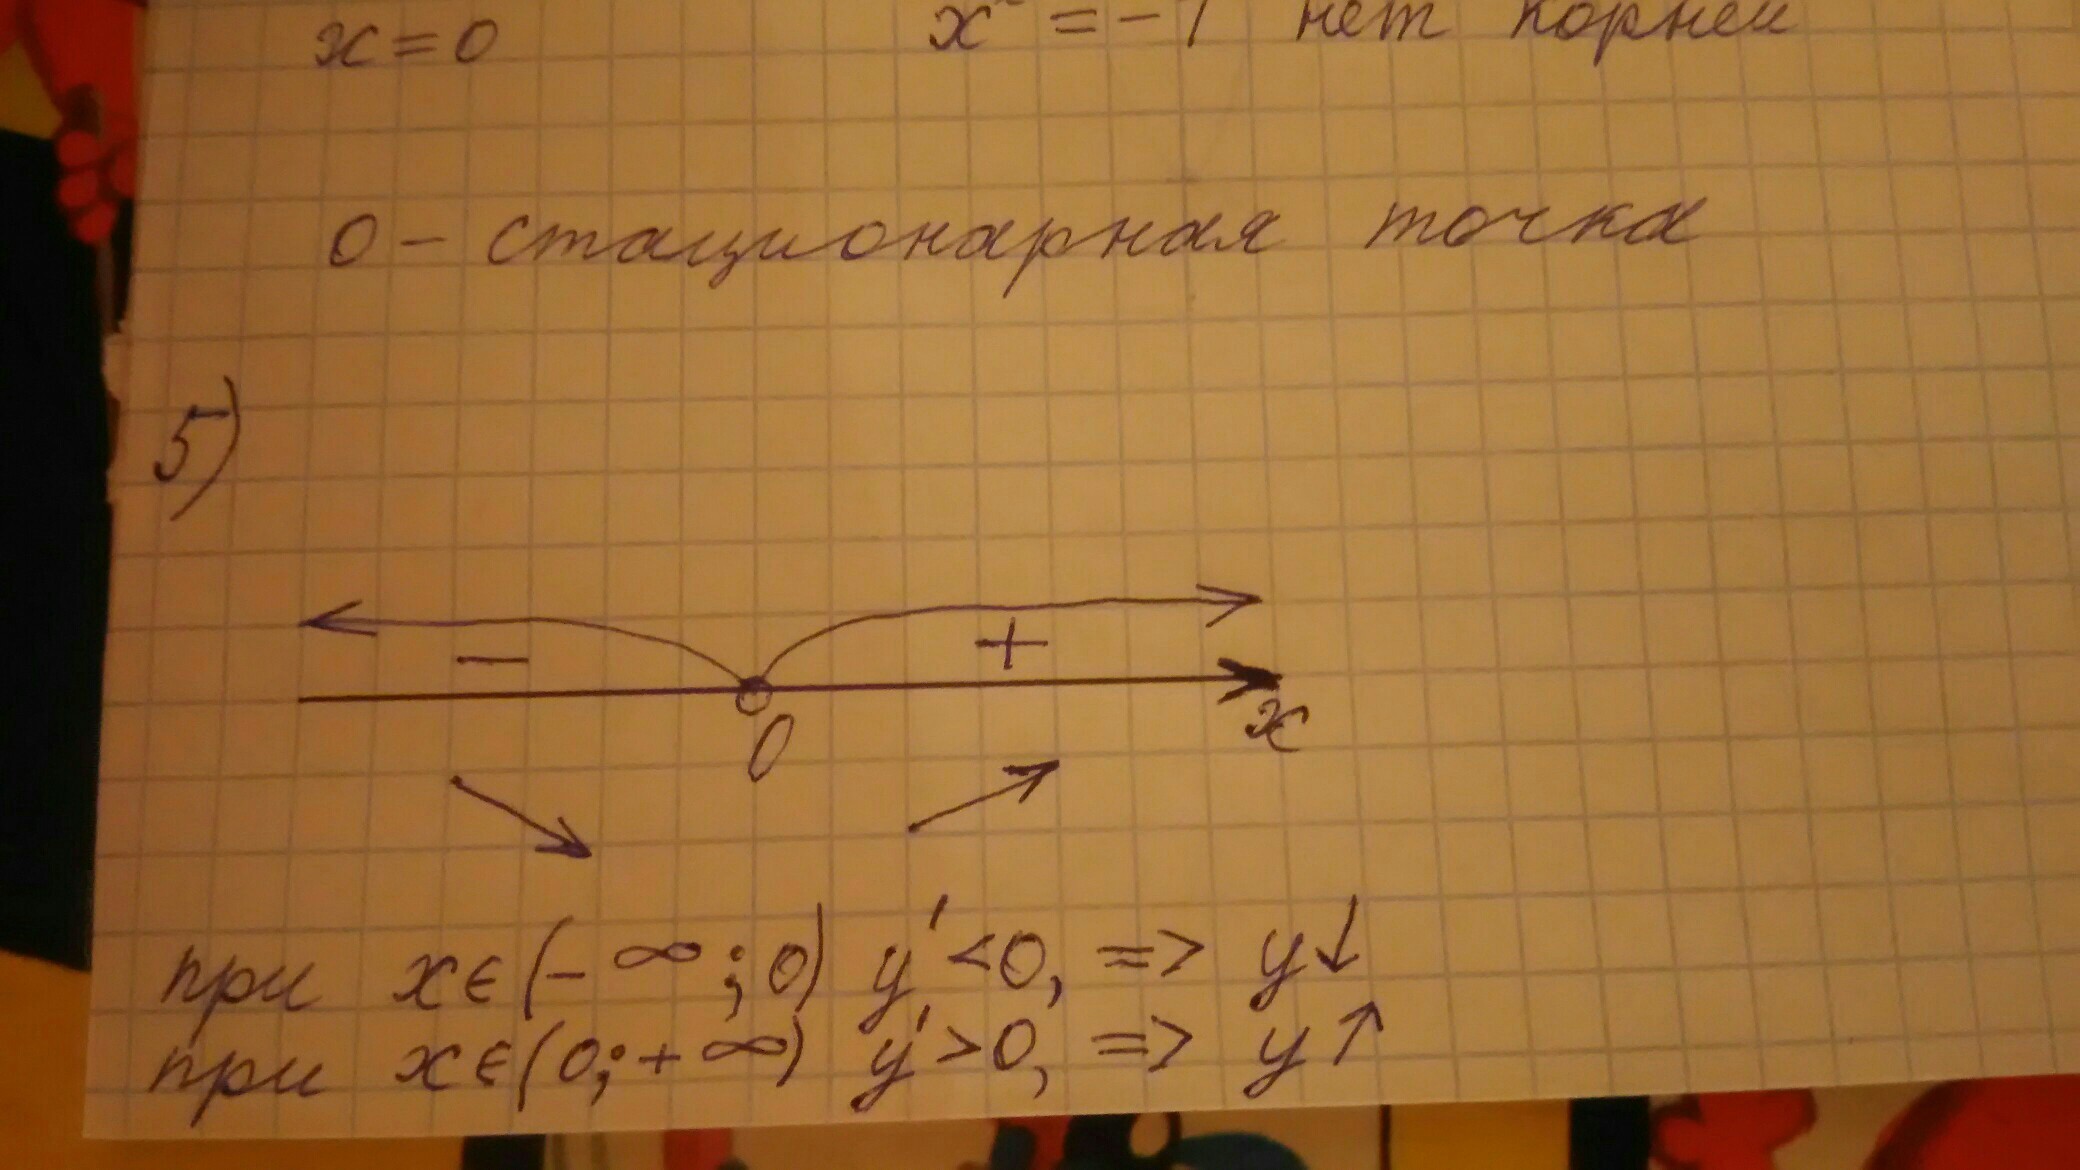 x = 0 x² = -1 нет корней
0 - стационарная точка
5)
- +
0 x
при x∈(-∞;0) y'<0, => y↓
при x∈(0;+∞) y'>0, => y↑